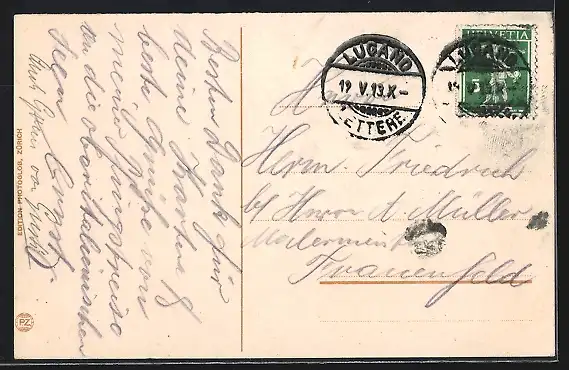 Besten Dank für
deine Karten &
beste Grüsse von
meiner Pfingstreise
an die oberitalienischen
Seen. Ernst.
Auch Grüsse von
EDITION PHOTOGLOB, ZÜRICH
PZ
LUGANO
19.V.13.X-
LETTERE
HELVETIA
5
LUGANO
Herrn Friedrich
b/ Herrn A Müller
Malermeister
Frauenfeld